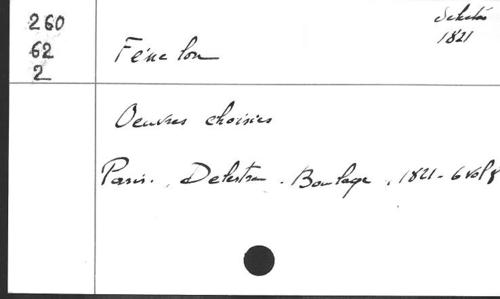 260
62
2
Fénelon
1821
Oeuvres choisies
Paris. Delestre. Boulage. 1821 - 6 vol 8